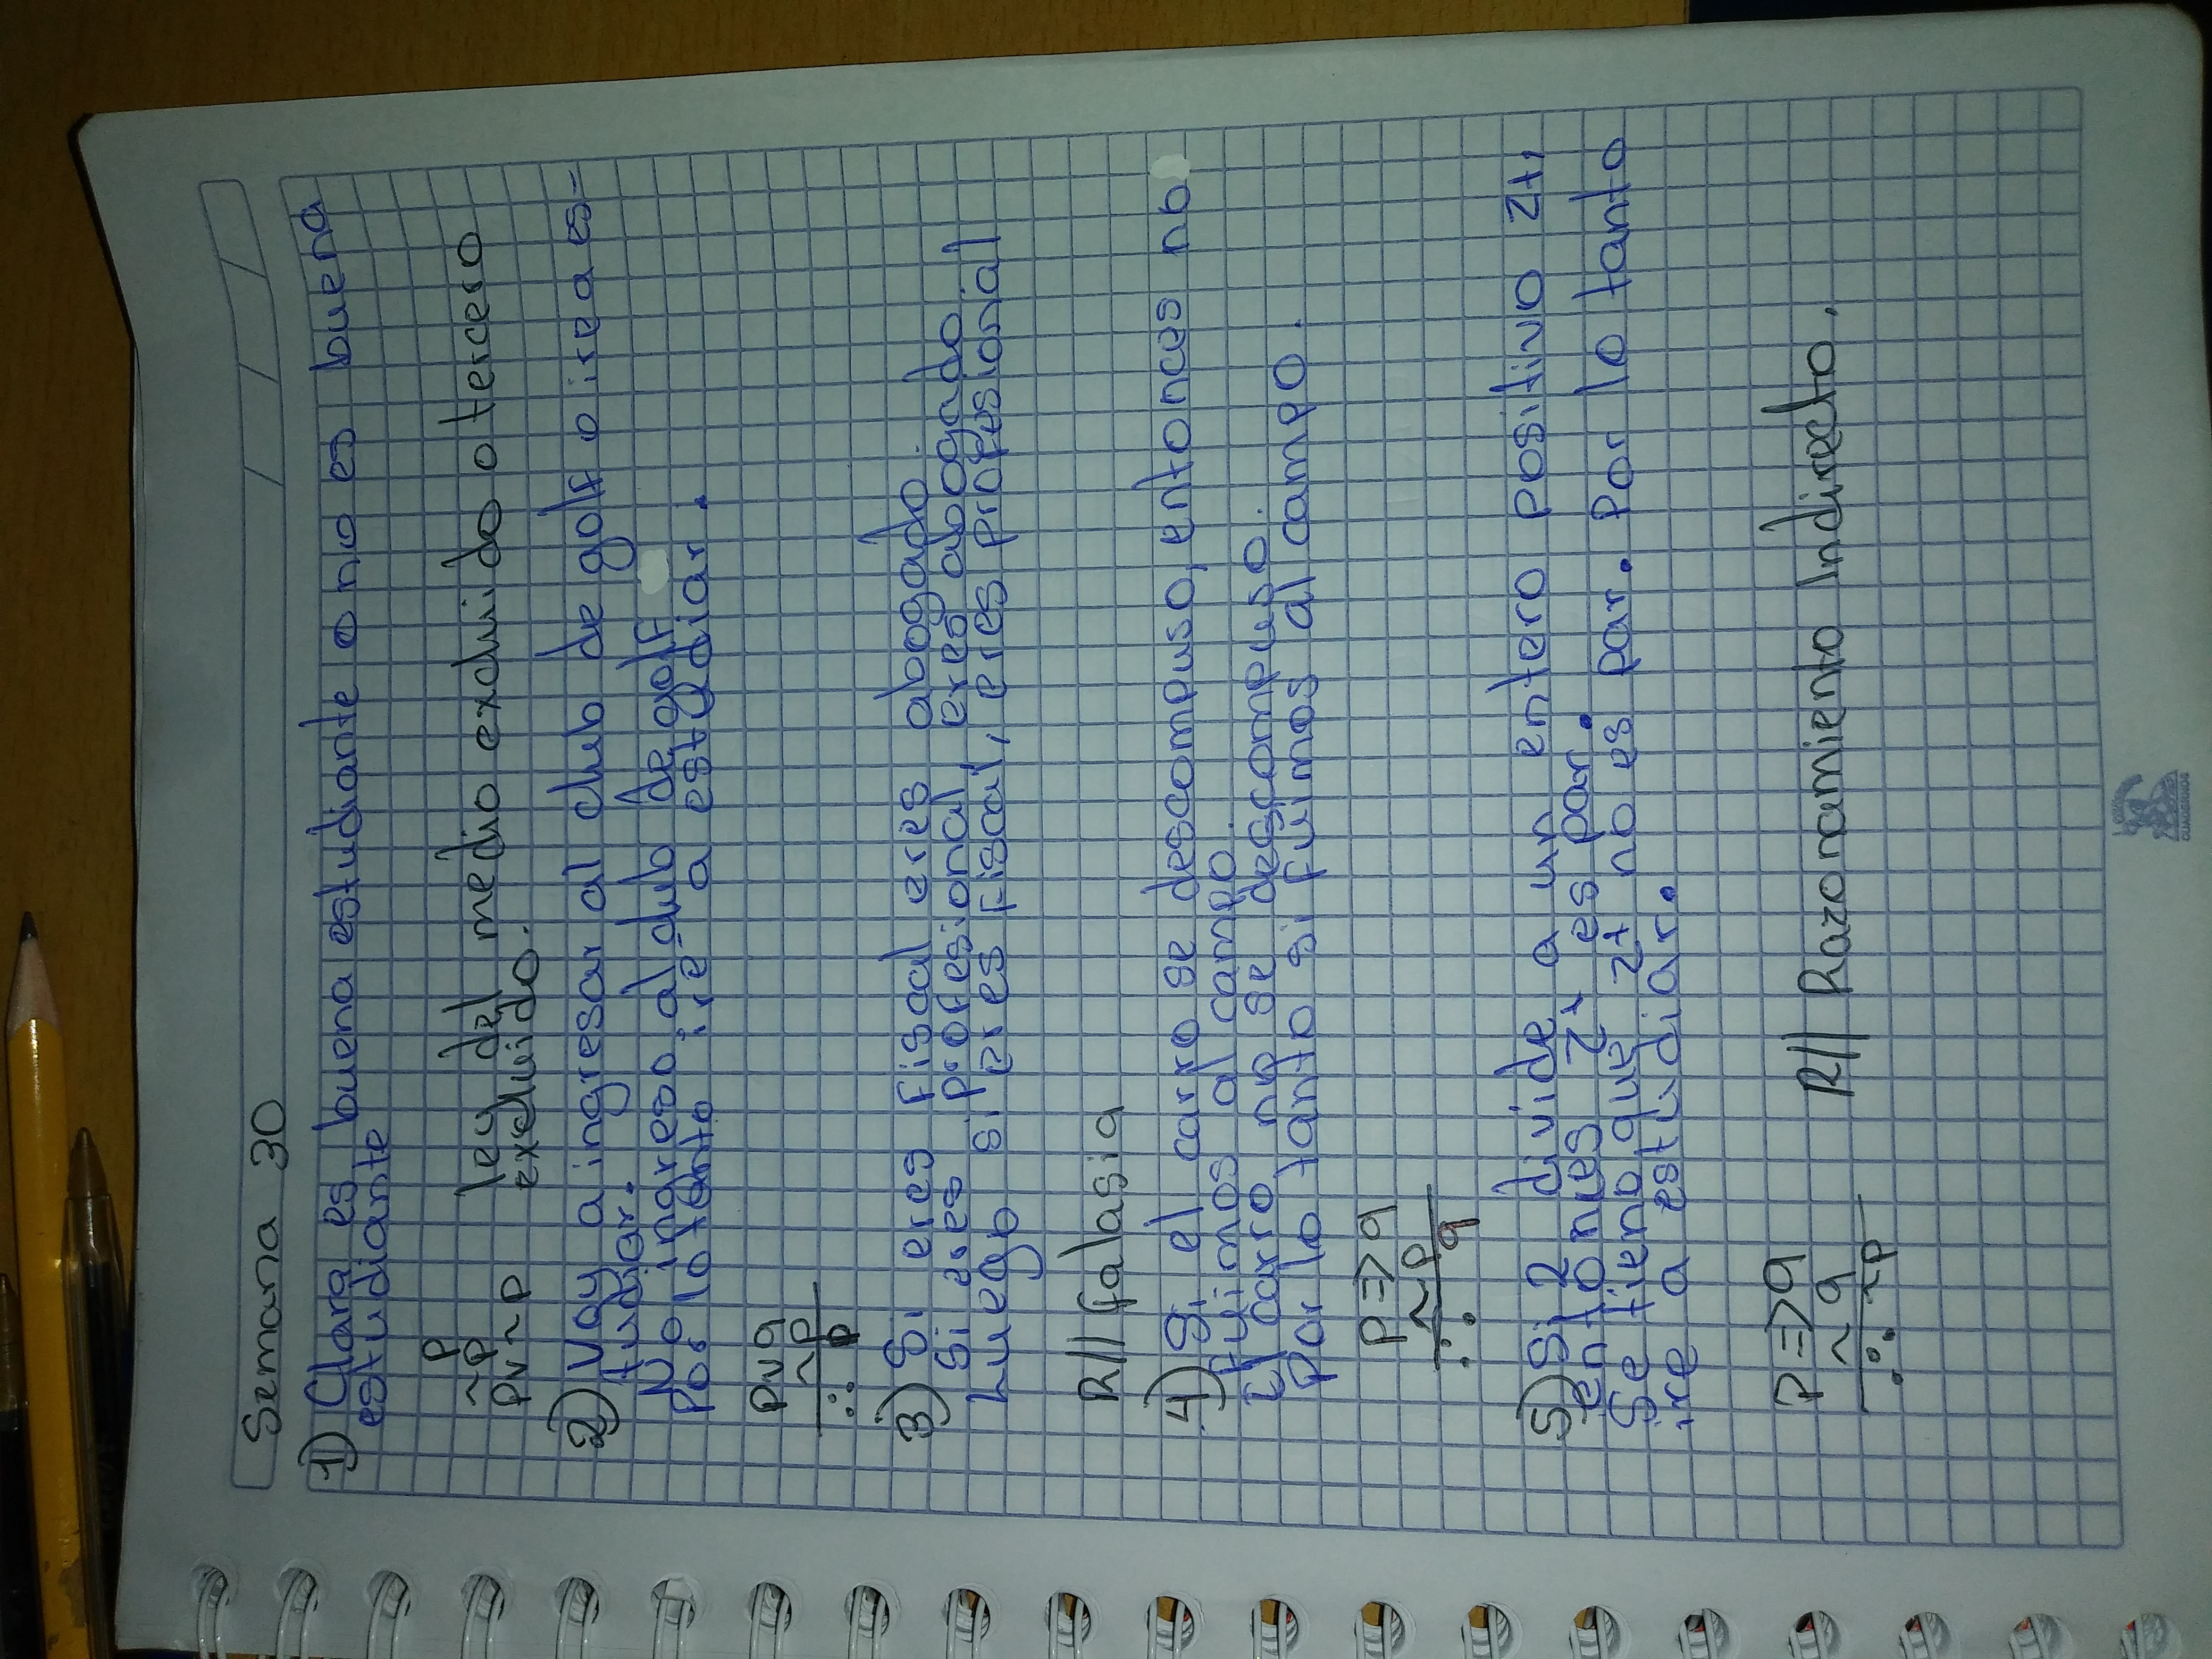 Semana 30
1) Clara es buena estudiante o no es buena
estudiante
p
~p ley del medio excluido o tercero
pv~p excluido.
2) Voy a ingresar al club de golf o ire a es-
tudiar.
No ingreso al club de golf
Por lo tanto ire a estudiar.
pvq
~p
∴ p
3) Si eres fiscal eres abogado.
Si eres profesional eres abogado.
Luego si eres fiscal, eres profesional
R// falasia
4) Si el carro se descompuso, entonces no
fuimos al campo.
El carro no se descompuso.
Por lo tanto si fuimos al campo.
p=>q
~p
∴ q
5) Si 2 divide a un entero positivo Z+,
entonces Z+ es par.
Se tiene que Z+ no es par. Por lo tanto
ire a estudiar.
p=>q
~q R// Razonamiento Indirecto.
∴ ~p